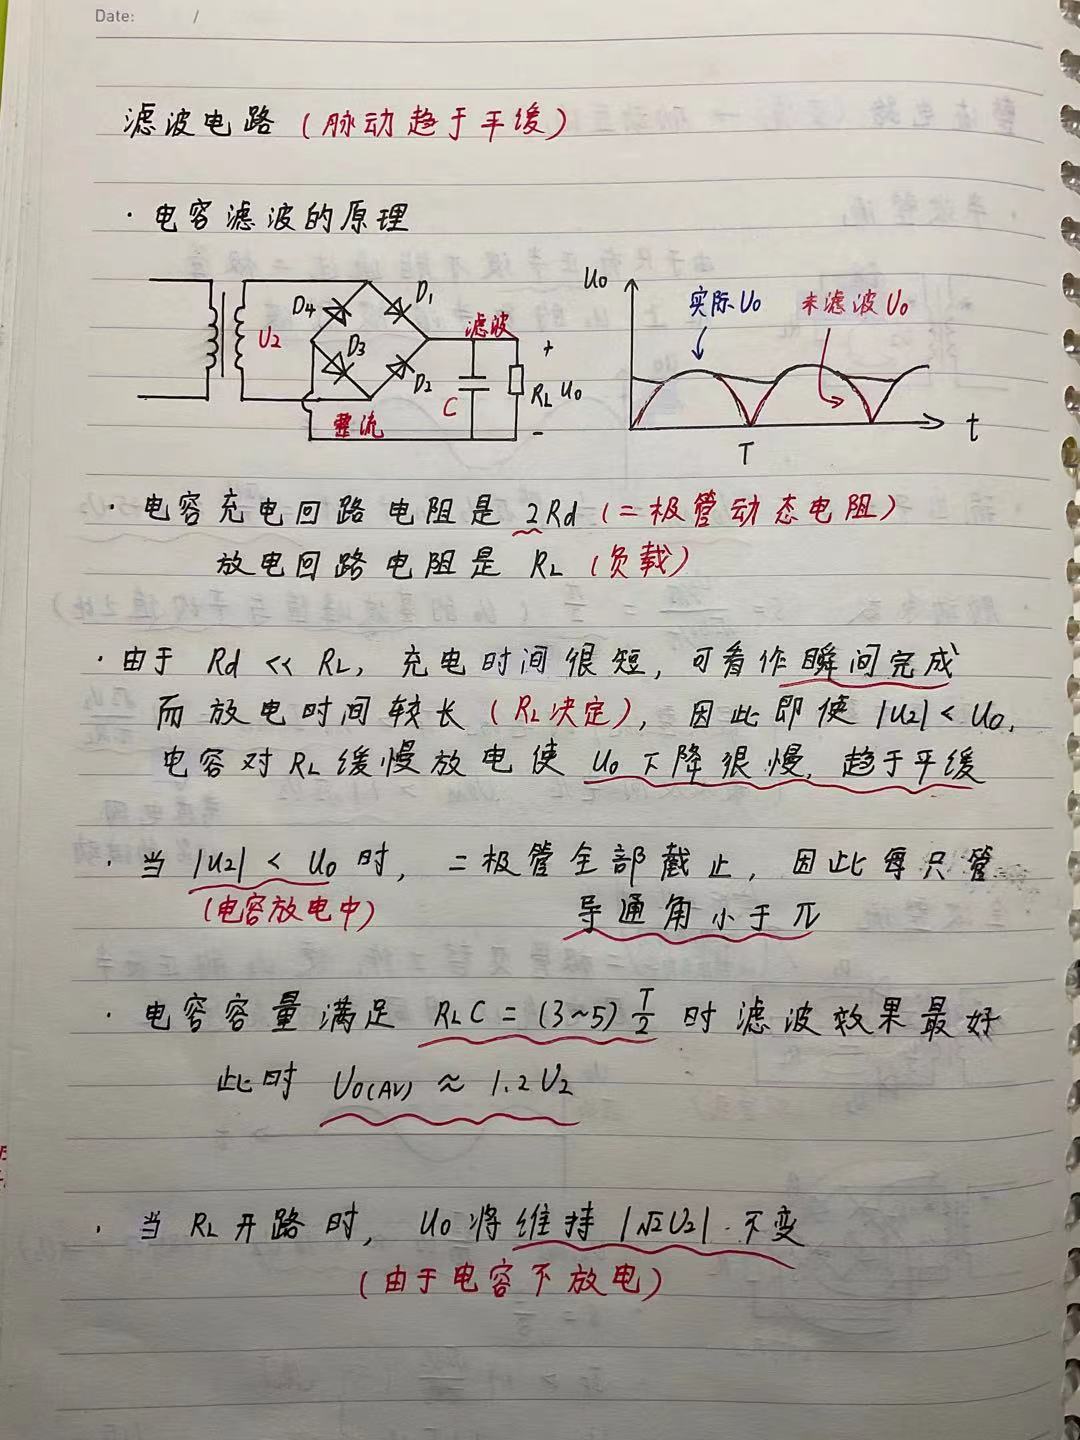 Date: /
滤波电路 (脉动趋于平缓)
· 电容滤波的原理
D4 D1 U2 D3 D2 滤波 C RL + U0 - 整流
U0 实际U0 未滤波U0 T t
· 电容充电回路电阻是 2Rd (二极管动态电阻)
放电回路电阻是 RL (负载)
· 由于 Rd << RL, 充电时间很短, 可看作瞬间完成
而放电时间较长 (RL决定), 因此即使 |U2| < U0,
电容对RL缓慢放电使 U0下降很慢, 趋于平缓
· 当 |U2| < U0 时, 二极管全部截止, 因此每只管
(电容放电中) 导通角小于 π
· 电容容量满足 RLC = (3~5) T/2 时滤波效果最好
此时 U0(AV) ≈ 1.2U2
· 当 RL 开路时, U0将维持 |√2U2| 不变
(由于电容不放电)